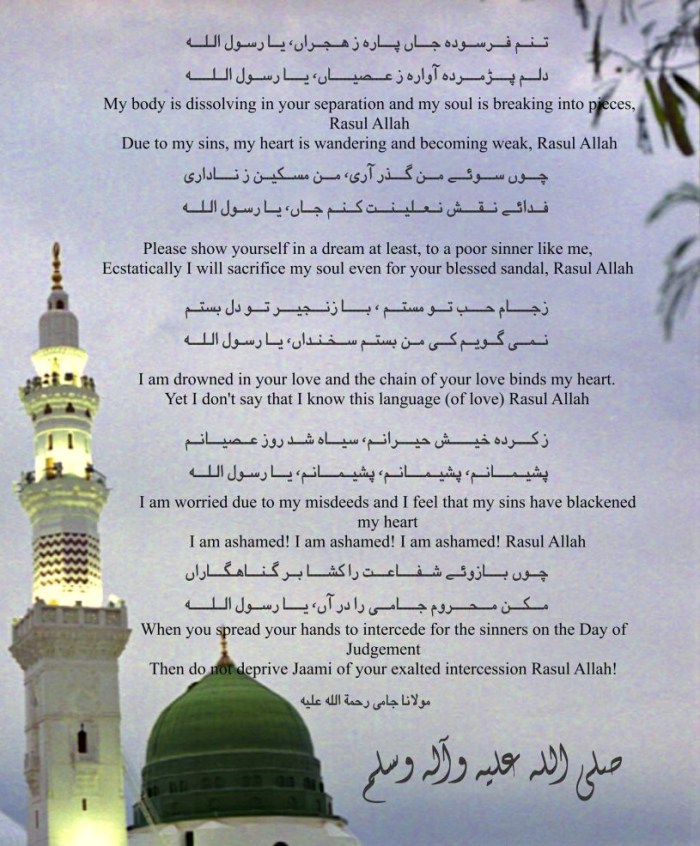 تنم فرسوده جاں پاره ز هجراں، یا رسول الله
دلم پژمرده آواره ز عصیاں، یا رسول الله
My body is dissolving in your separation and my soul is breaking into pieces,
Rasul Allah
Due to my sins, my heart is wandering and becoming weak, Rasul Allah
چوں سوئے من گذر آری، من مسکین ز ناداری
فدائے نقش نعلینت کنم جاں، یا رسول الله
Please show yourself in a dream at least, to a poor sinner like me,
Ecstatically I will sacrifice my soul even for your blessed sandal, Rasul Allah
زجام حب تو مستم ، با زنجیر تو دل بستم
نمی گویم کی من بستم سخنداں، یا رسول الله
I am drowned in your love and the chain of your love binds my heart.
Yet I don't say that I know this language (of love) Rasul Allah
ز کرده خیش حیرانم، سیاه شد روز عصیانم
پشیمانم، پشیمانم، پشیمانم، یا رسول الله
I am worried due to my misdeeds and I feel that my sins have blackened
my heart
I am ashamed! I am ashamed! I am ashamed! Rasul Allah
چوں بازوئے شفاعت را کشا بر گناهگاراں
مکن محروم جامی را در آں، یا رسول الله
When you spread your hands to intercede for the sinners on the Day of
Judgement
Then do not deprive Jaami of your exalted intercession Rasul Allah!
مولانا جامی رحمة الله علیه
صلى الله عليه وآله وسلم